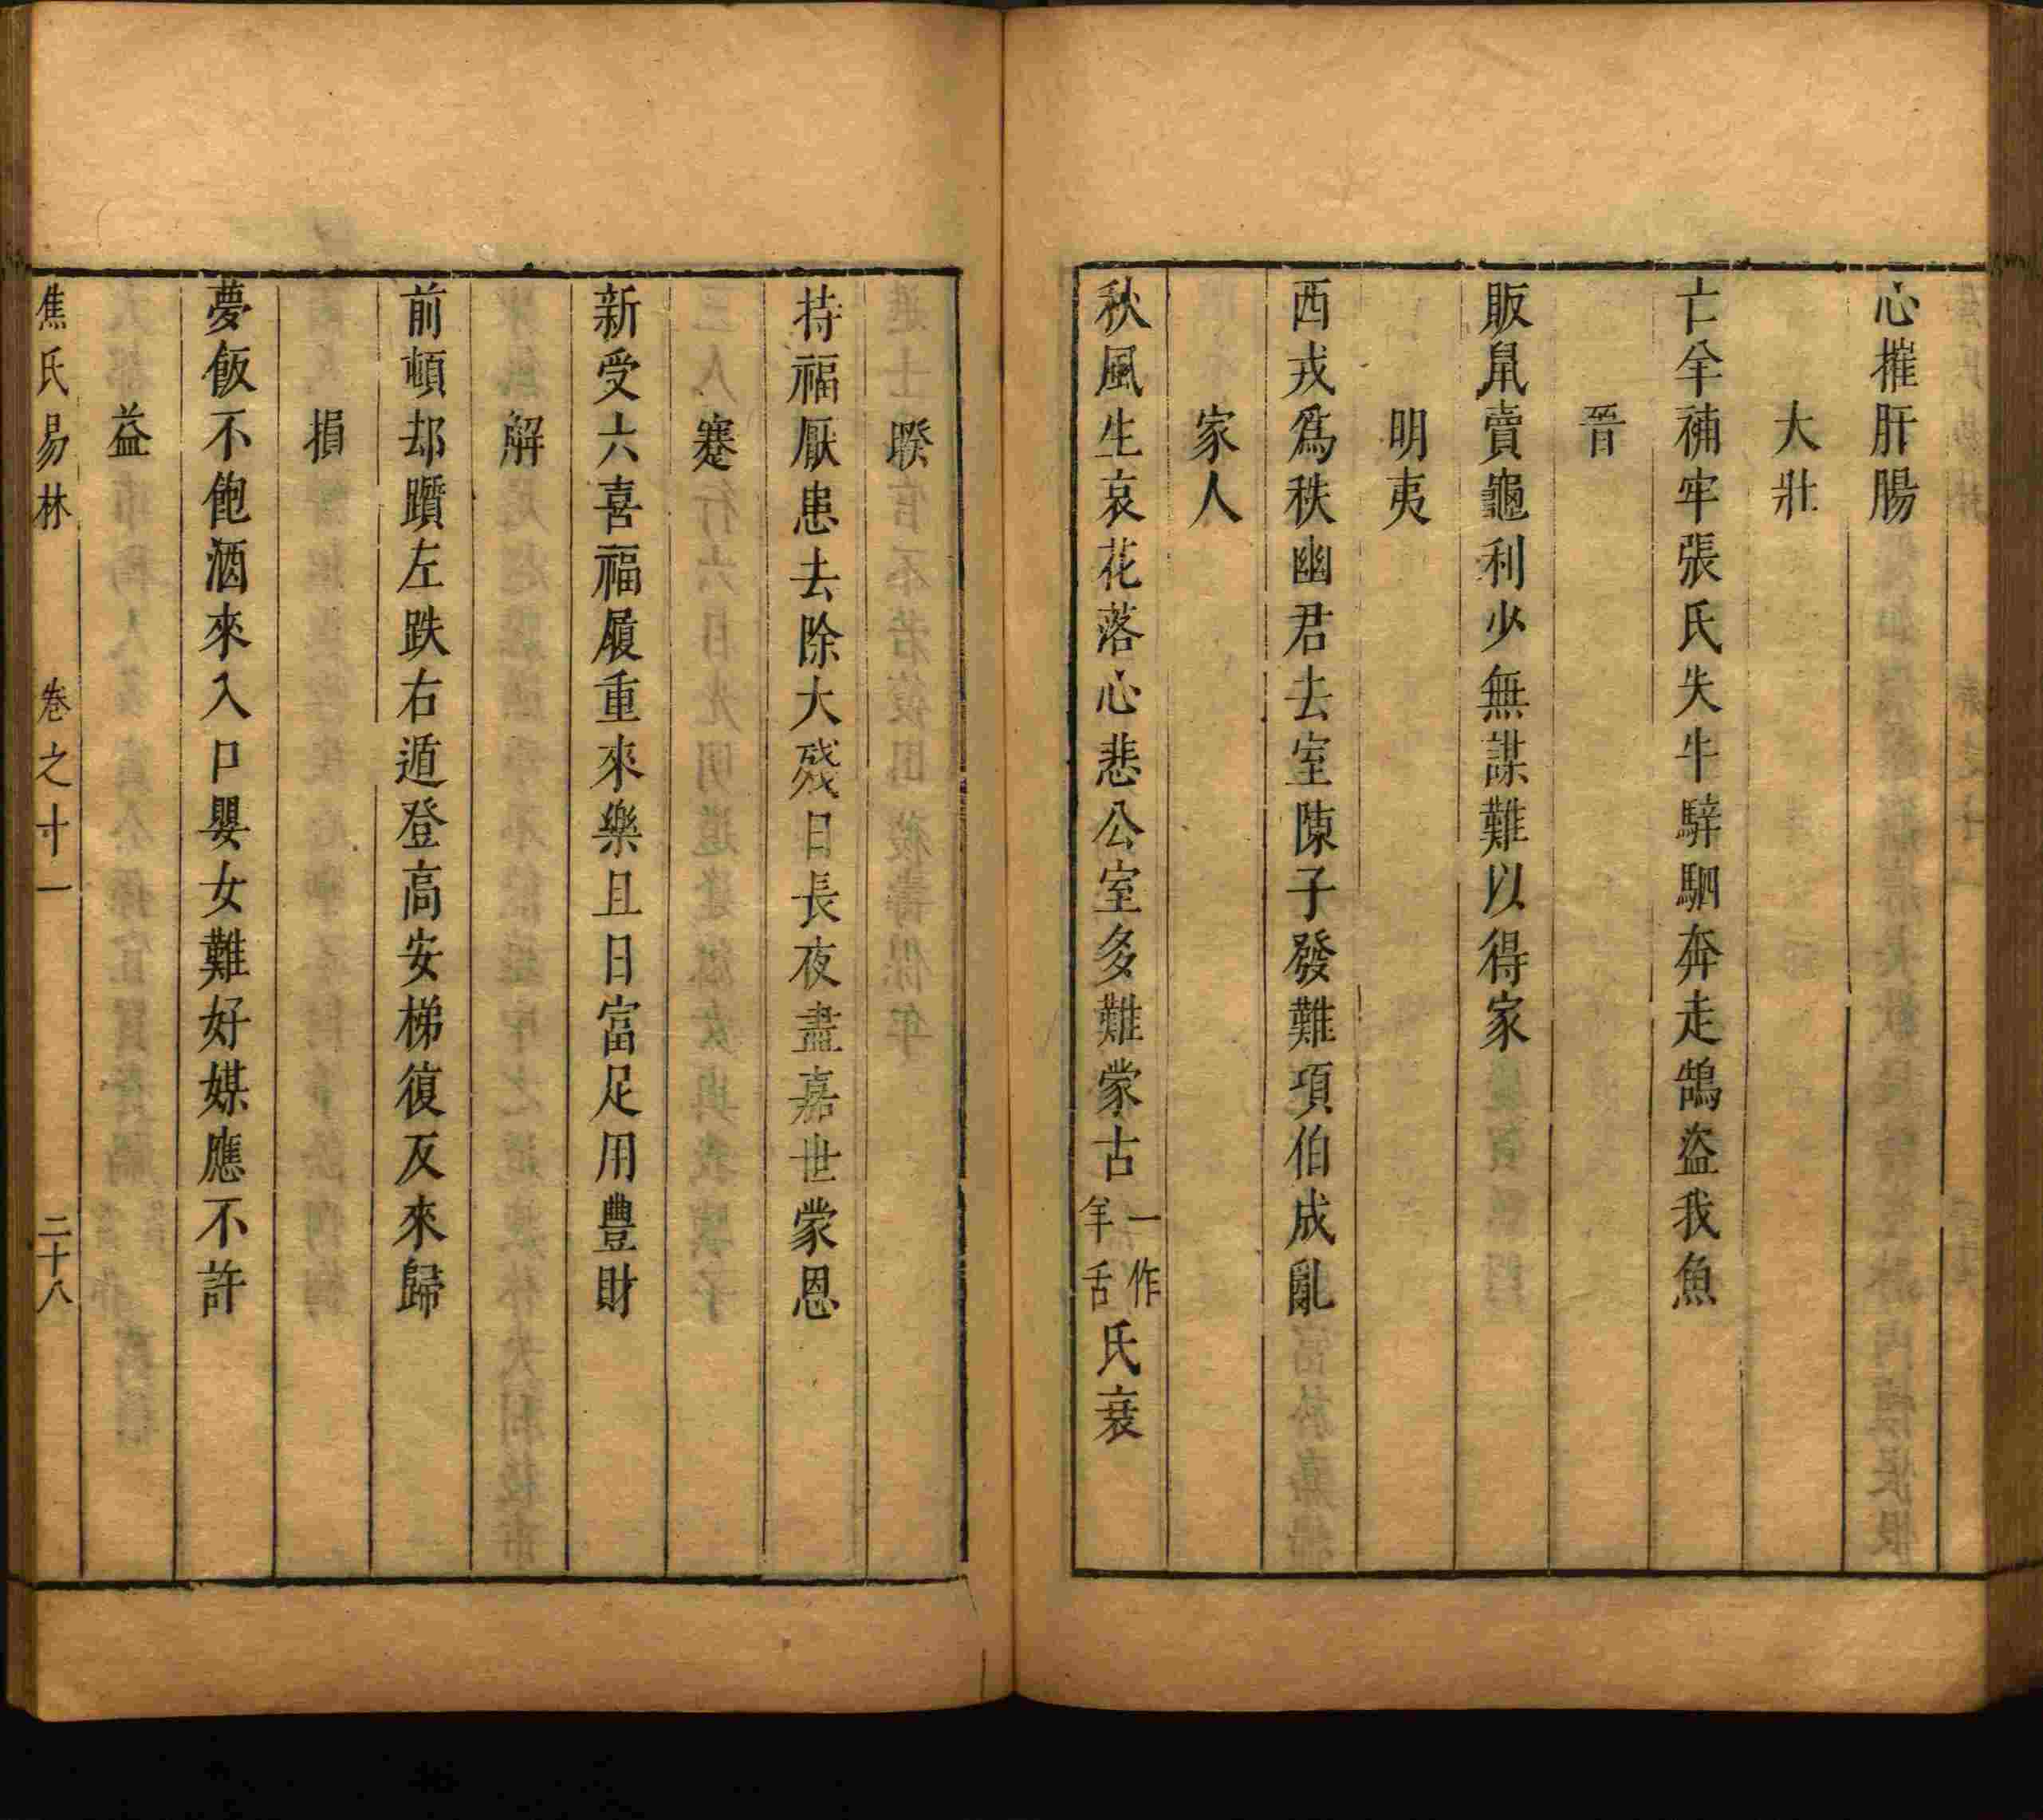 心摧肝腸
大壯
亡羊補牢張氏失牛騂駟奔走鵠盜我魚
晉
販鼠賣龜利少無謀難以得家
明夷
西戎爲秩幽君去室陳子發難項伯成亂
家人
秋風生哀花落心悲公室多難蒙古一作羊舌氏衰
睽
持福厭患去除大殘日長夜盡嘉世蒙恩
蹇
新受六喜福履重來樂且日富足用豐財
解
前頓却躓左跌右遁登高安梯復反來歸
損
夢飯不飽酒來入口嬰女難好媒應不許
益
焦氏易林 卷之十一 二十八